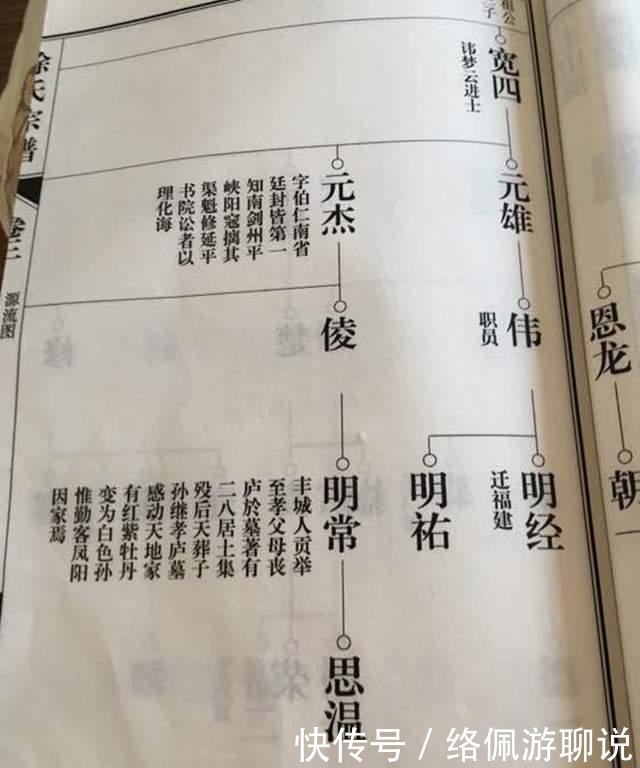 祖公
子
宽四
讳梦云进士
元雄
元杰
字伯仁南省
廷封皆第一
知南剑州平
峡阳寇擒其
渠魁修延平
书院讼者以
理化海
伟
职员
倰
明经
迁福建
明祐
明常
丰城人贡举
至孝父母丧
庐於墓著有
二八居士集
殁后天葬子
孙继孝庐墓
感动天地家
有红紫牡丹
变为白色孙
惟勤客凤阳
因家焉
思温
恩龙
朝
徐氏宗谱
卷三
源流图
快传号 / 络佩游聊说